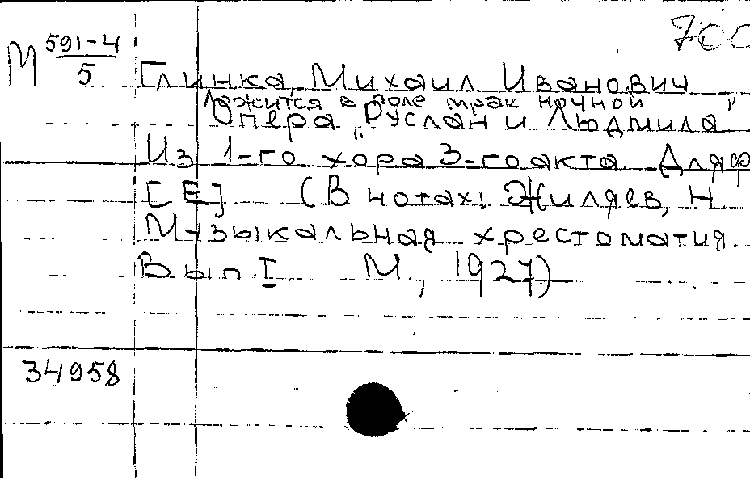 700
М 591-4/5
Глинка, Михаил Иванович
Ложится в поле мрак ночной
Опера "Руслан и Людмила"
Из 1-го хора 3-го акта Для ф
[Е] (В нотах: Жиляев, Н.
Музыкальная хрестоматия.
Вып I М., 1927)
34958